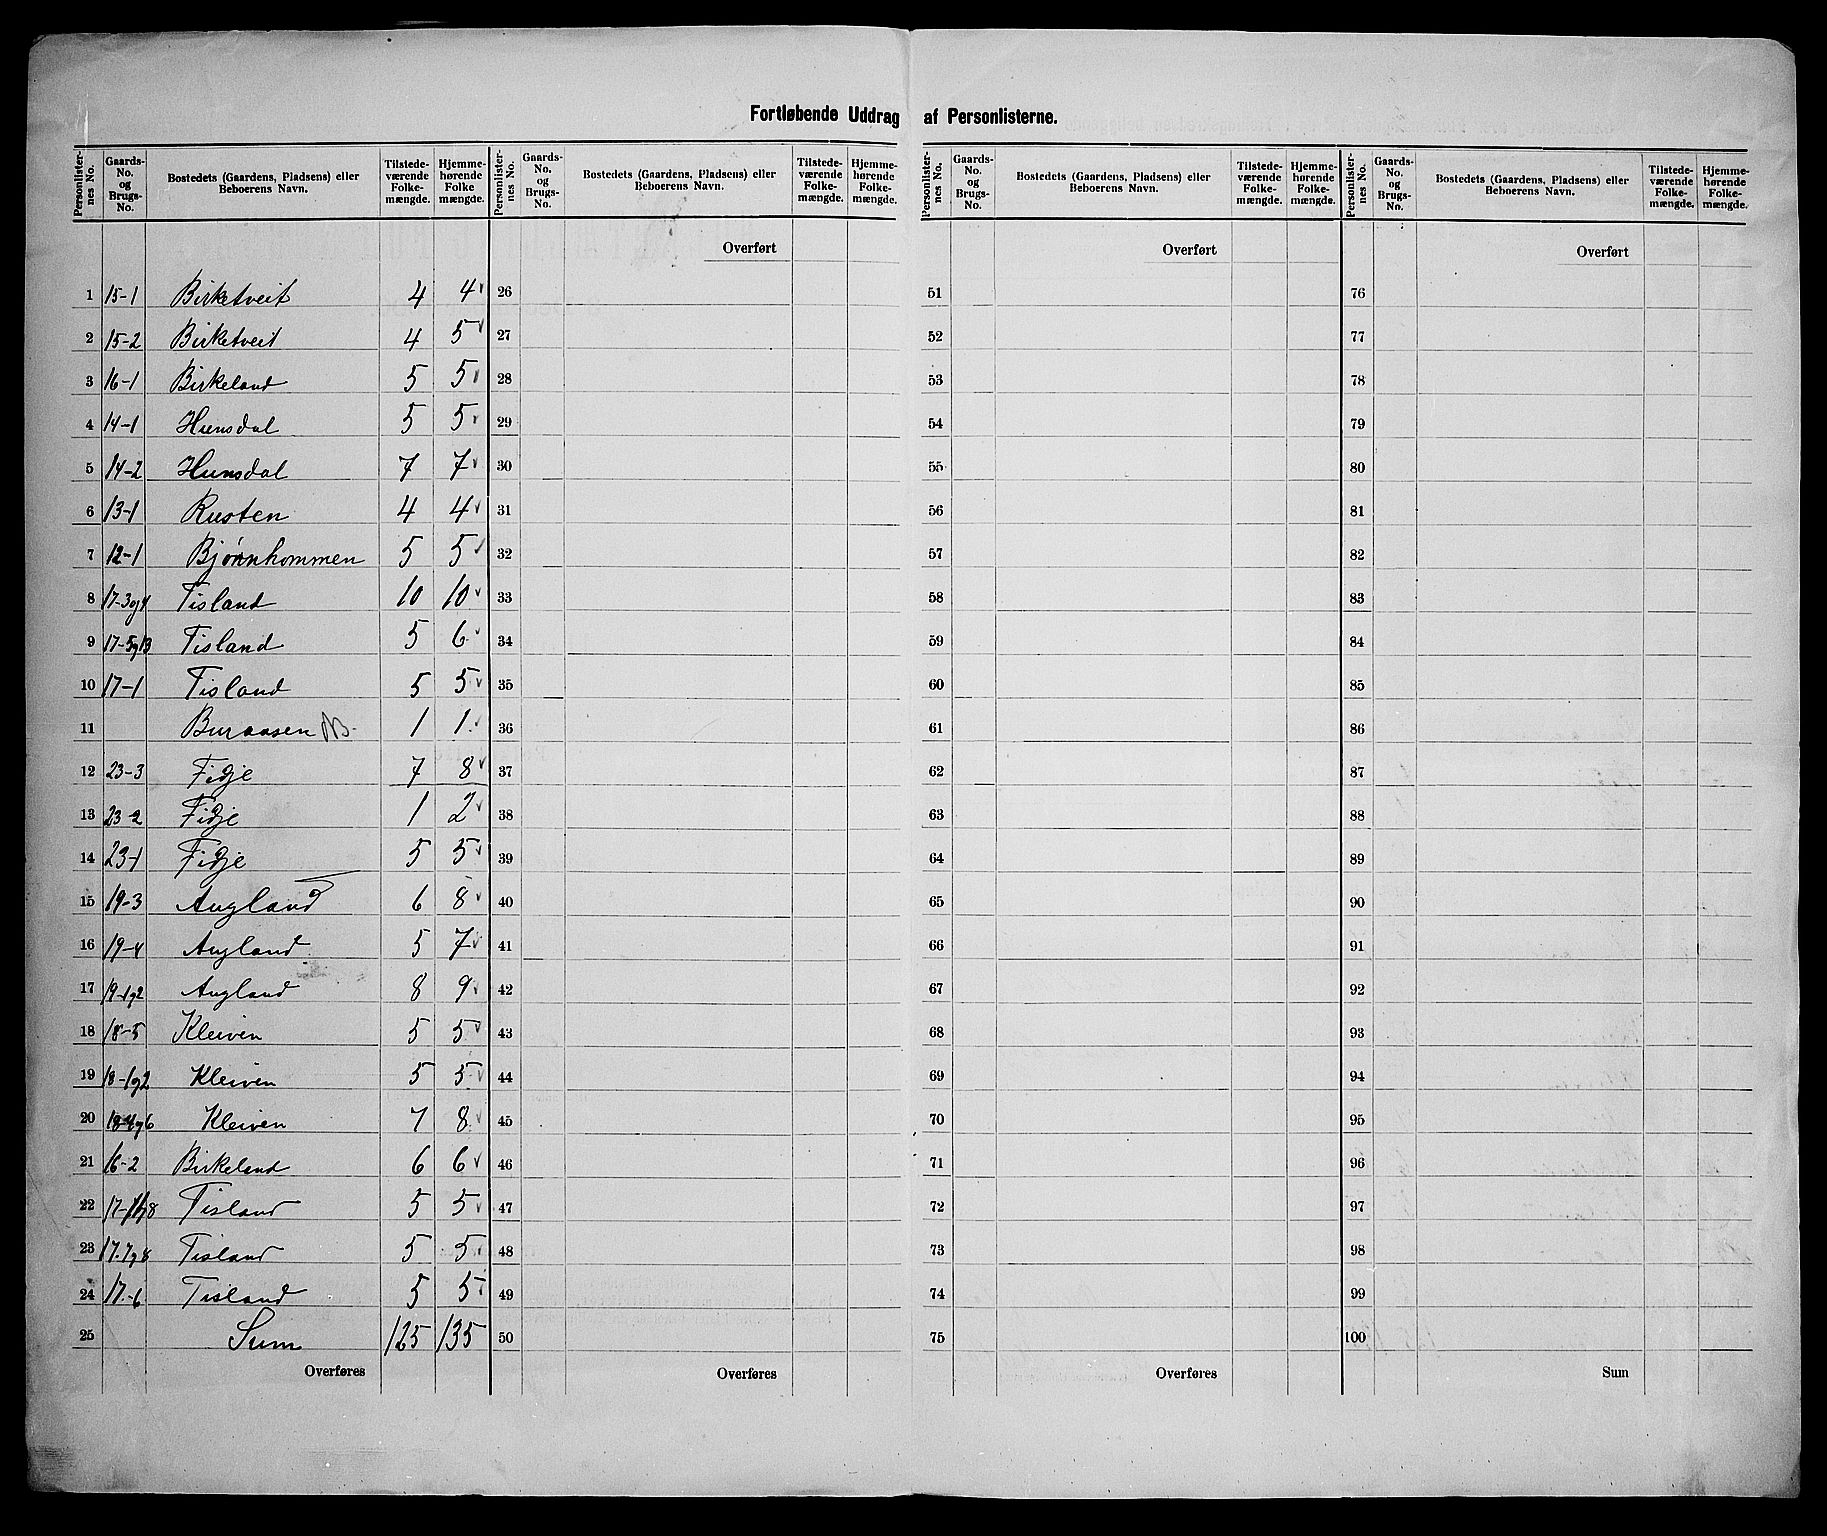 Fortløbende Uddrag af Personlisterne.
Personlister-nes No. Gaards-No. og Brugs-No. Bostedets (Gaardens, Pladsens) eller Beboerens Navn. Tilstede-værende Folke-mængde. Hjemme-hørende Folke mængde. Personlister-nes No. Gaards-No. og Brugs-No. Bostedets (Gaardens, Pladsens) eller Beboerens Navn. Tilstede-værende Folke-mængde. Hjemme-hørende Folke-mængde. Personlister-nes No. Gaards-No. og Brugs-No. Bostedets (Gaardens, Pladsens) eller Beboerens Navn. Tilstede-værende Folke-mængde. Hjemme-hørende Folke-mængde. Personlister-nes No. Gaards-No. og Brugs-No. Bostedets (Gaardens, Pladsens) eller Beboerens Navn. Tilstede-værende Folke-mængde. Hjemme-hørende Folke-mængde.
Overført Overført Overført
1 15-1 Birketveit 4 4 26 51 76
2 15-2 Birketveit 4 5 27 52 77
3 16-1 Birkeland 5 5 28 53 78
4 14-1 Hunsdal 5 5 29 54 79
5 14-2 Hunsdal 7 7 30 55 80
6 13-1 Rusten 4 4 31 56 81
7 12-1 Bjønnhommen 5 5 32 57 82
8 17-3og4 Tisland 10 10 33 58 83
9 17-5g13 Tisland 5 6 34 59 84
10 17-1 Tisland 5 5 35 60 85
11 Buraasen B. 1 1 36 61 86
12 23-3 Fidje 7 8 37 62 87
13 23-2 Fidje 1 2 38 63 88
14 23-1 Fidje 5 5 39 64 89
15 19-3 Augland 6 8 40 65 90
16 19-4 Augland 5 7 41 66 91
17 19-1g2 Augland 8 9 42 67 92
18 18-5 Kleiven 5 5 43 68 93
19 18-1g2 Kleiven 5 5 44 69 94
20 18-4g6 Kleiven 7 8 45 70 95
21 16-2 Birkeland 6 6 46 71 96
22 Tisland 5 5 47 72 97
23 17.7g8 Tisland 5 5 48 73 98
24 17.-6 Tisland 5 5 49 74 99
25 Sum 125 135 50 75 100
Overføres Overføres Overføres Sum